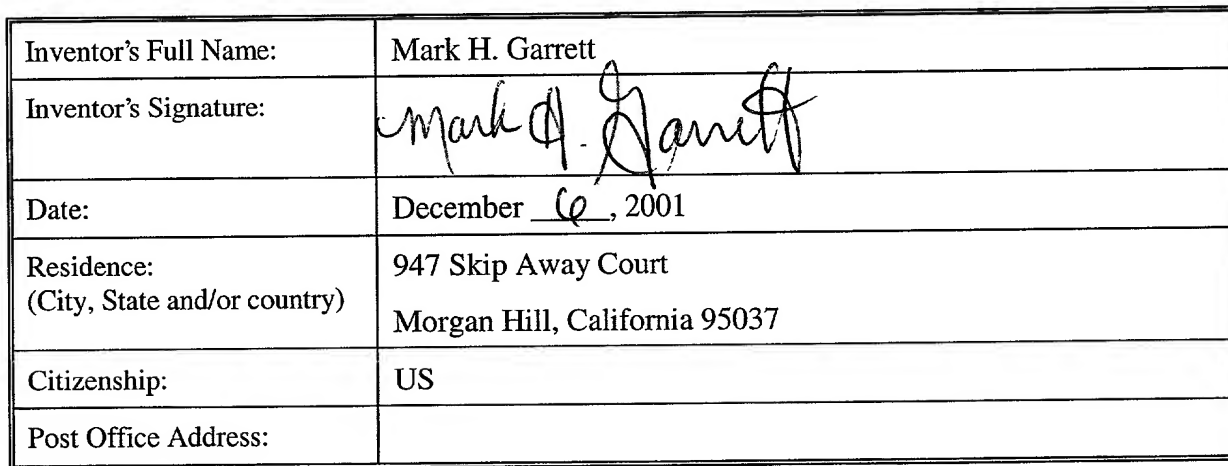 Inventor's Full Name: Mark H. Garrett
Inventor's Signature: Mark H. Garrett
Date: December 6, 2001
Residence: 947 Skip Away Court
(City, State and/or country)
Morgan Hill, California 95037
Citizenship: US
Post Office Address: